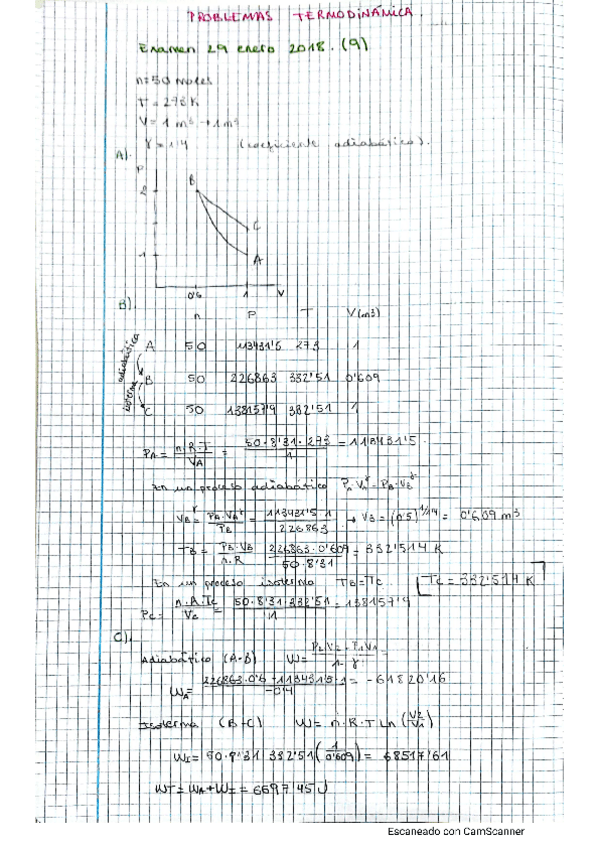 PROBLEMAS TERMODINÁMICA.
Examen 29 enero 2018. (9)
n=50 moles
T = 273 K
V = 1 m³ → 1 m³
γ = 1'4 (coeficiente adiabático).
A).
P
B
2
C
1
A
0'6 1 V
B).
n P T V(m³)
adiabática
isoterma
A 50 113431'5 273 1
B 50 226863 332'51 0'609
C 50 138157'9 332'51 1
PA = n.R.T / VA = 50.8'31.273 / 1 = 113431'5
En un proceso adiabático PA.VA^γ = PB.VB^γ
VB^γ = PA.VA^γ / PB = 113431'5.1 / 226863 → VB = (0'5)^1/1'4 = 0'609 m³
TB = PB.VB / n.R = 226863.0'609 / 50.8'31 = 332'514 K
En un proceso isotermo TB=TC TC = 332'514 K
PC = n.R.TC / VC = 50.8'31.332'51 / 1 = 138157'9
C).
Adiabático (A-B) W = P2V2 - P1V1 / 1-γ =
WA = 226863.0'6 - 113431'5.1 / -0'4 = -61820'16
Isoterma (B-C) W = n.R.T Ln (V2/V1)
WI = 50.8'31 332'51 (1/0'609) = 68517'61
WT = WA + WI = 6697'45 J
Escaneado con CamScanner